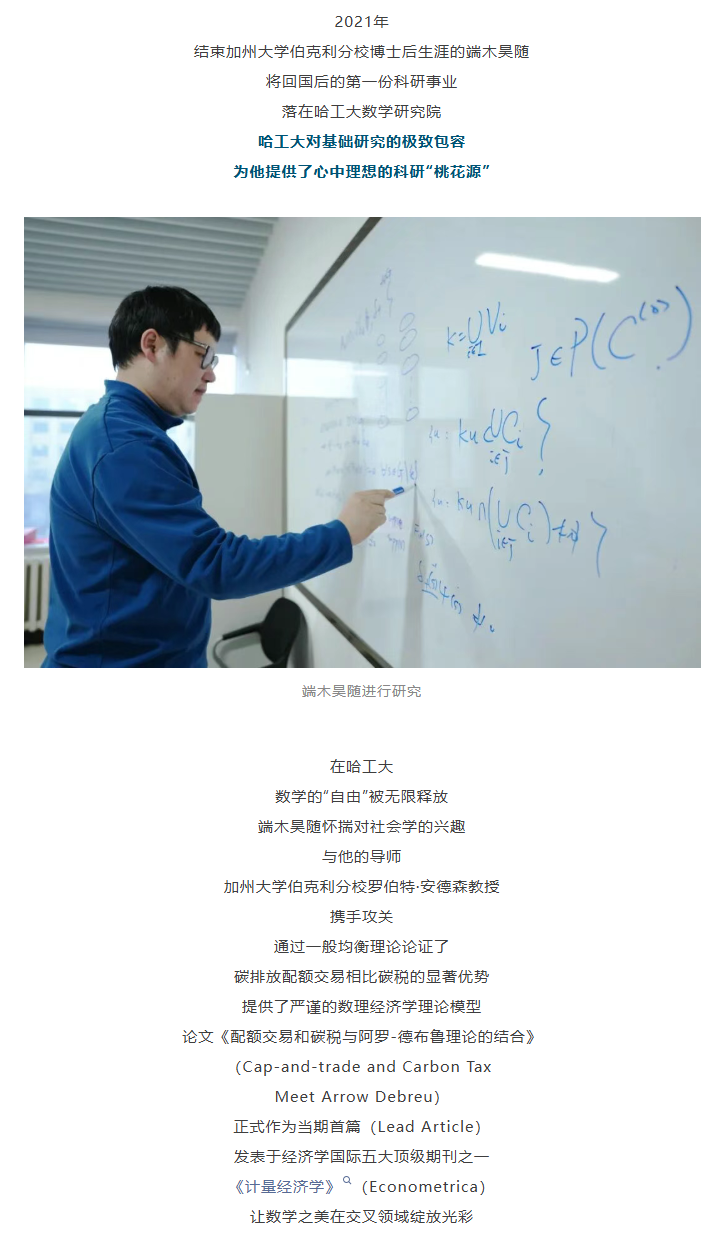 2021年
结束加州大学伯克利分校博士后生涯的端木昊随
将回国后的第一份科研事业
落在哈工大数学研究院
哈工大对基础研究的极致包容
为他提供了心中理想的科研“桃花源”
k=⋃Vi
i∈1
J∈P(C
端木昊随进行研究
在哈工大
数学的“自由”被无限释放
端木昊随怀揣对社会学的兴趣
与他的导师
加州大学伯克利分校罗伯特·安德森教授
携手攻关
通过一般均衡理论论证了
碳排放配额交易相比碳税的显著优势
提供了严谨的数理经济学理论模型
论文《配额交易和碳税与阿罗-德布鲁理论的结合》
（Cap-and-trade and Carbon Tax
Meet Arrow Debreu）
正式作为当期首篇（Lead Article）
发表于经济学国际五大顶级期刊之一
《计量经济学》（Econometrica）
让数学之美在交叉领域绽放光彩